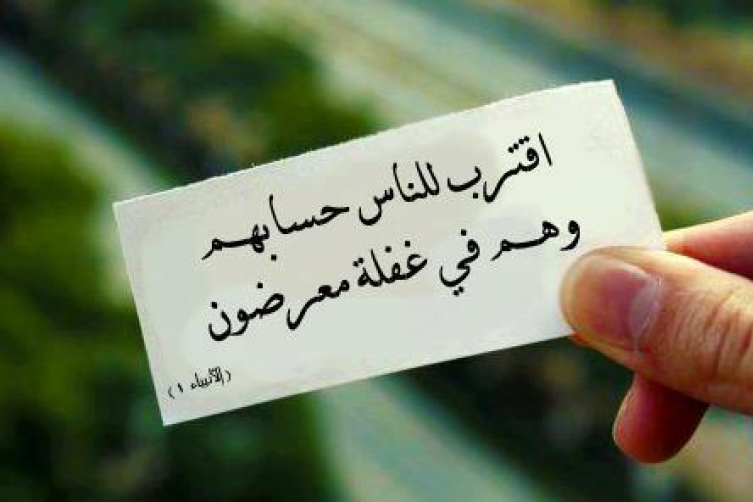 اقترب للناس حسابهم
وهم في غفلة معرضون
(الأنبياء ١)